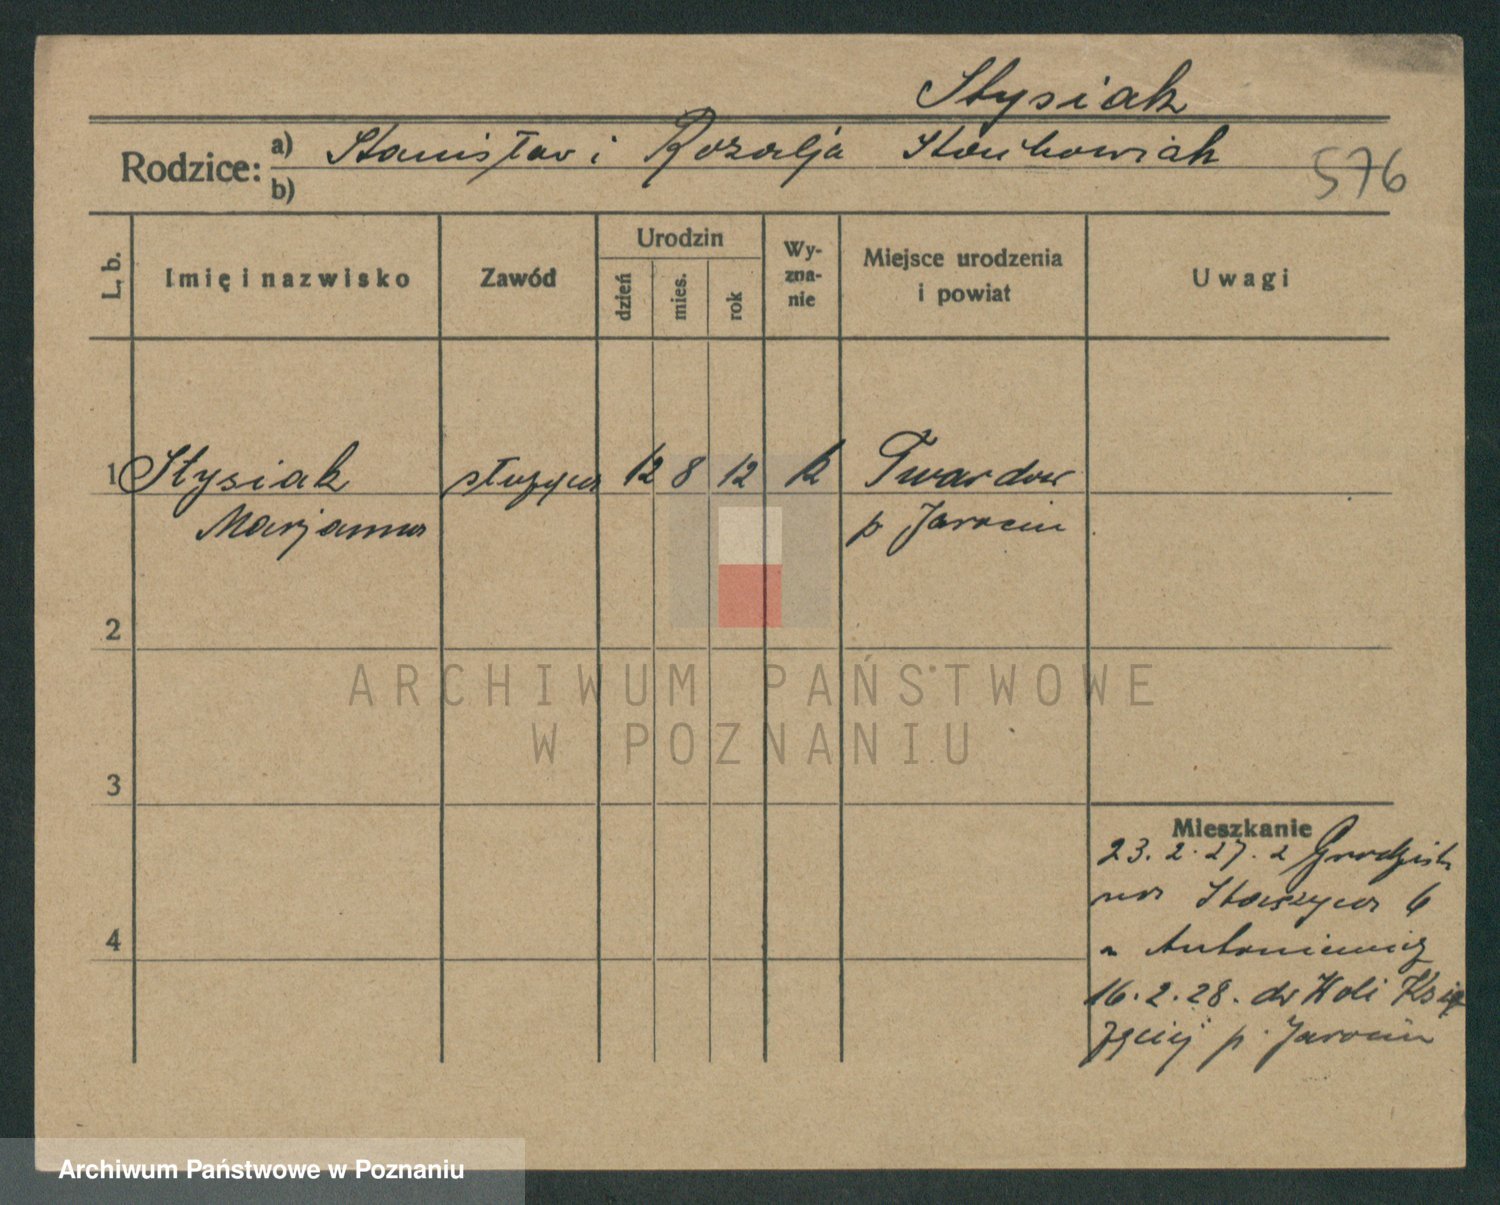 Stysiak
Rodzice: a) Stanisław i Rozalja Stachowiak
b)
576
L. b. Imię i nazwisko Zawód Urodzin dzień mies. rok Wy-zna-nie Miejsce urodzenia i powiat Uwagi
1 Stysiak służąca 12 8 12 k Twardów
Marjanna p Jarocin
2
ARCHIWUM PAŃSTWOWE
W POZNANIU
3
Mieszkanie
23. 2. 27. z Grodziska
na Staszyca 6
u Antoniewicz
4
16. 2. 28. do Woli Ksią
żęcej p. Jarocin
Archiwum Państwowe w Poznaniu